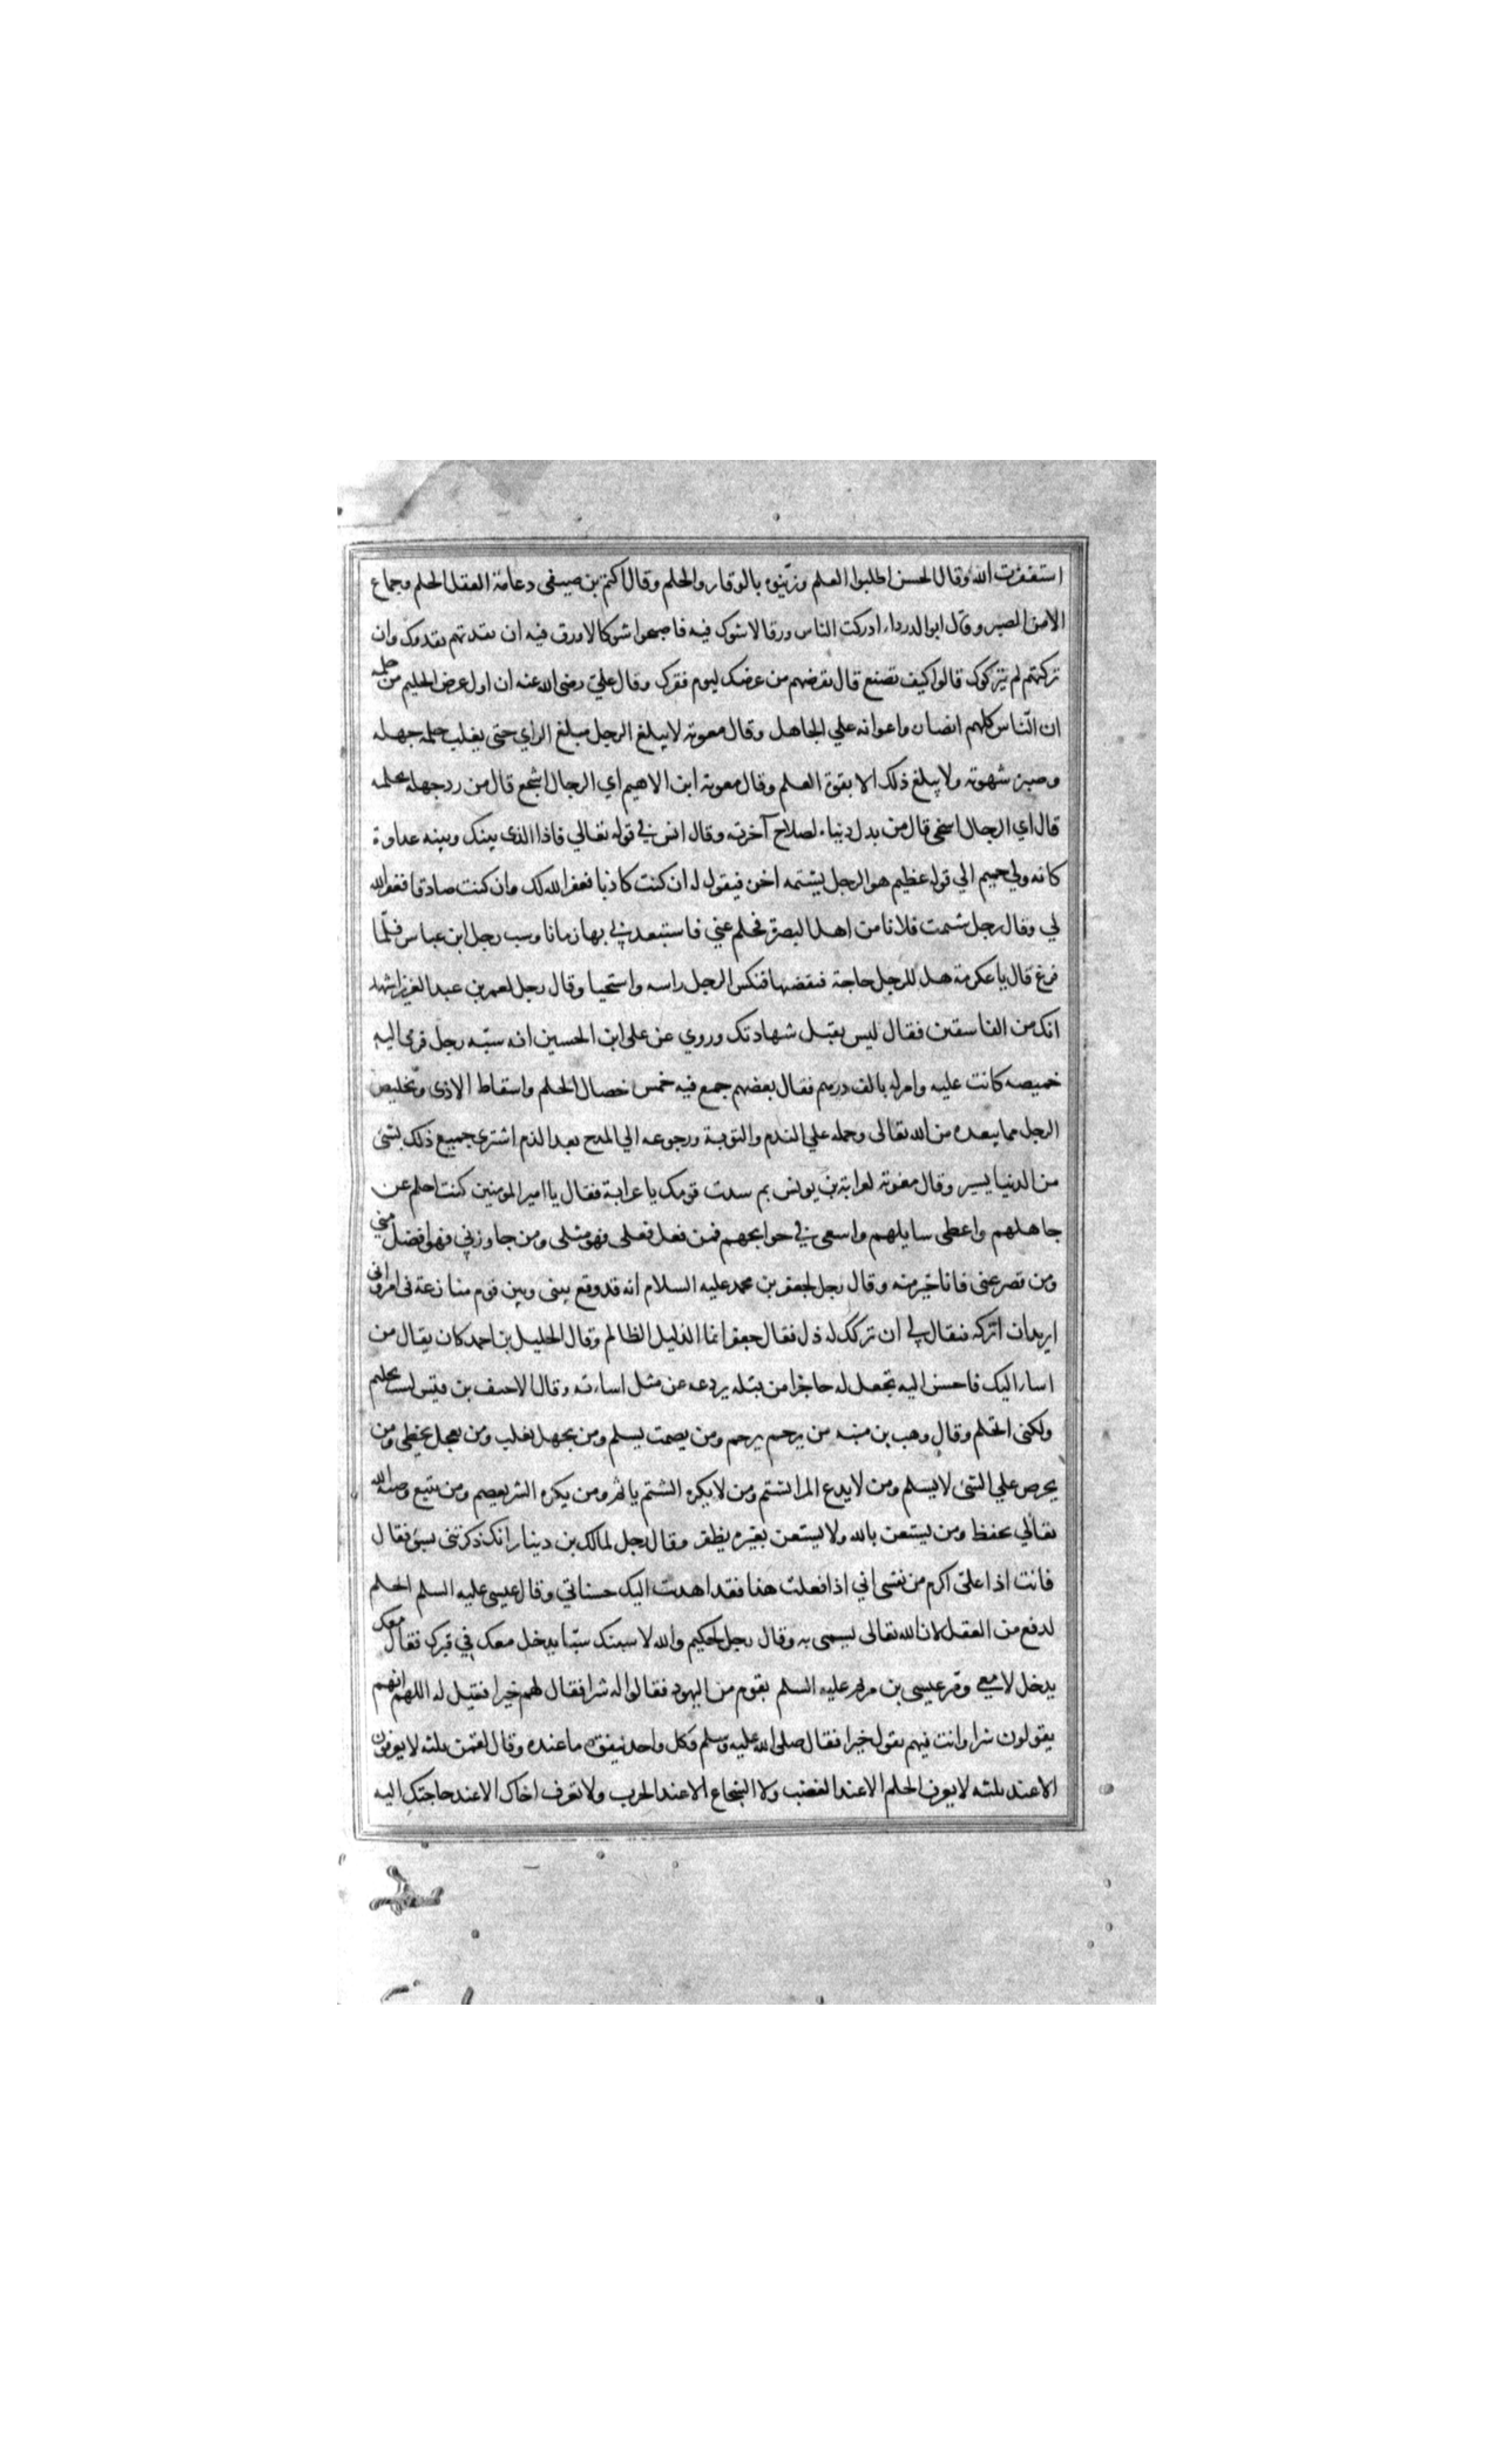 استغفرت الله وقال الحسن اطلبوا العلم وزينوه بالوقار والحلم وقال اكثم بن صيفى دعامة العقل الحلم وجماع
الامن الصبر وقال ابو الدرداء ادركت الناس ورقا لا شوك فيه فاصبحوا شوكا لا ورق فيه ان نقدتهم نقدوك وان
تركتهم لم يتركوك قالوا كيف نصنع قال نقرضهم من عرضك ليوم فقرك وقال على رضى الله عنه ان اول عوض الحليم من حلمه
ان الناس كلهم انصار واعوانه علي الجاهل وقال معوية لا يبلغ الرجل مبلغ الراي حتى يغلب حلمه جهله
وصبره شهوته ولا يبلغ ذلك الا بقوة العلم وقال معوية ابن الاهيم اي الرجال اشجع قال من رد جهله بحلمه
قال اي الرجال اسخى قال من بدل دنياه لصلاح آخرته وقال انس في قوله تعالي فاذا الذى بينك وبينه عداوة
كانه ولي حميم الي قوله عظيم هو الرجل يشتمه اخوه فيقول له ان كنت كاذبا فغفر الله لك وان كنت صادقا فغفر الله
لي وقال رجل شتمت فلانا من اهل البصرة فحلم عني فاستبعدني بها زمانا وسب رجل ابن عباس فلما
فرغ قال يا عكرمة هل للرجل حاجة فنقضها فنكس الرجل راسه واستحيا وقال رجل لعمر بن عبد العزيز اشهد
انك من الفاسقين فقال ليس يقبل شهادتك وروي عن على ابن الحسين انه سبه رجل فرمى اليه
خميصه كانت عليه وامر له بالف درهم فقال بعضهم جمع فيه خمس خصال الحلم واسقاط الاذى وتخليص
الرجل مما يبعده من الله تعالى وحمله علي الندم والتوبة ورجوعه الي المدح بعد الذم اشترى جميع ذلك بشئ
من الدنيا يسير وقال معوية لعرابة بن يونس بم سدت قومك يا عرابة فقال يا امير المومنين كنت احلم عن
جاهلهم واعطى سايلهم واسعى في حوايجهم فمن فعل فعلى فهو مثلى ومن جاوزني فهو افضل مني
ومن قصر عنى فانا خير منه وقال رجل لجعفر بن محمد عليه السلام انه قد وقع بينى وبين قوم منازعة فى امر وانى
اريد ان اتركه فيقال لي ان تركك له ذل فقال جعفر انما الذليل الظالم وقال الخليل بن احمد كان يقال من
اسا اليك فاحسن اليه تجعل له حاجزا من قبله يردعه عن مثل اساءته وقال الاحنف بن قيس لست بحليم
ولكنى اتحلم وقال وهب بن منبه من يرحم يرحم ومن يصمت يسلم ومن يجهل يغلب ومن يعجل يخطى ومن
يحرص علي الشئ لا يسلم ومن لا يدع المرا يشتم ومن لا يكره الشتم ياثم ومن يكره الشر يعصم ومن يتبع وصية الله
تعالي يحفظ ومن يستعن بالله ولا يستعن بغيره يظفر وقال رجل لمالك بن دينار انك ذكرتنى بسوء فقال
فانت اذا على اكرم من نفسى اني اذا فعلت هذا فقد اهديت اليك حسناتي وقال عيسى عليه السلم الحلم
لدفع من العقل لان الله تعالى يسمى به وقال رجل لحكيم والله لا سبنك سبا يدخل معك في قبرك فقال معك
يدخل لا معي ومر عيسى بن مريم عليه السلم بقوم من اليهود فقالوا له شرا فقال لهم خيرا فقيل له اللهم انهم
يقولون شرا وانت فيهم تقول خيرا فقال صلى الله عليه وسلم فكل واحد ينفق ما عنده وقال لقمن ثلثة لا يعرفون
الا عند ثلثه لا يعرف الحلم الا عند الغضب ولا الشجاع الا عند الحرب ولا تعرف اخاك الا عند حاجتك اليه